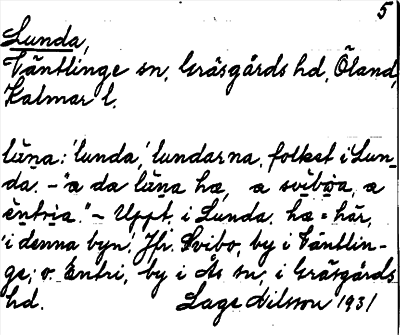 5
Lunda,
Ventlinge sn, Gräsgårds hd, Öland,
Kalmar l.
lu̇n̠a: 'lunda,' lundarna, folket i Lun-
da. - "a da lu̇n̠a hæ, a svibo̤a, a
ėntria." - Uppt. i Lunda. hæ = här,
'i denna byn'. Jfr. Svibo, by i Väntlin-
ge; o. Entri, by i Ås sn, i Gräsgårds
hd. Lage Nilsson 1931